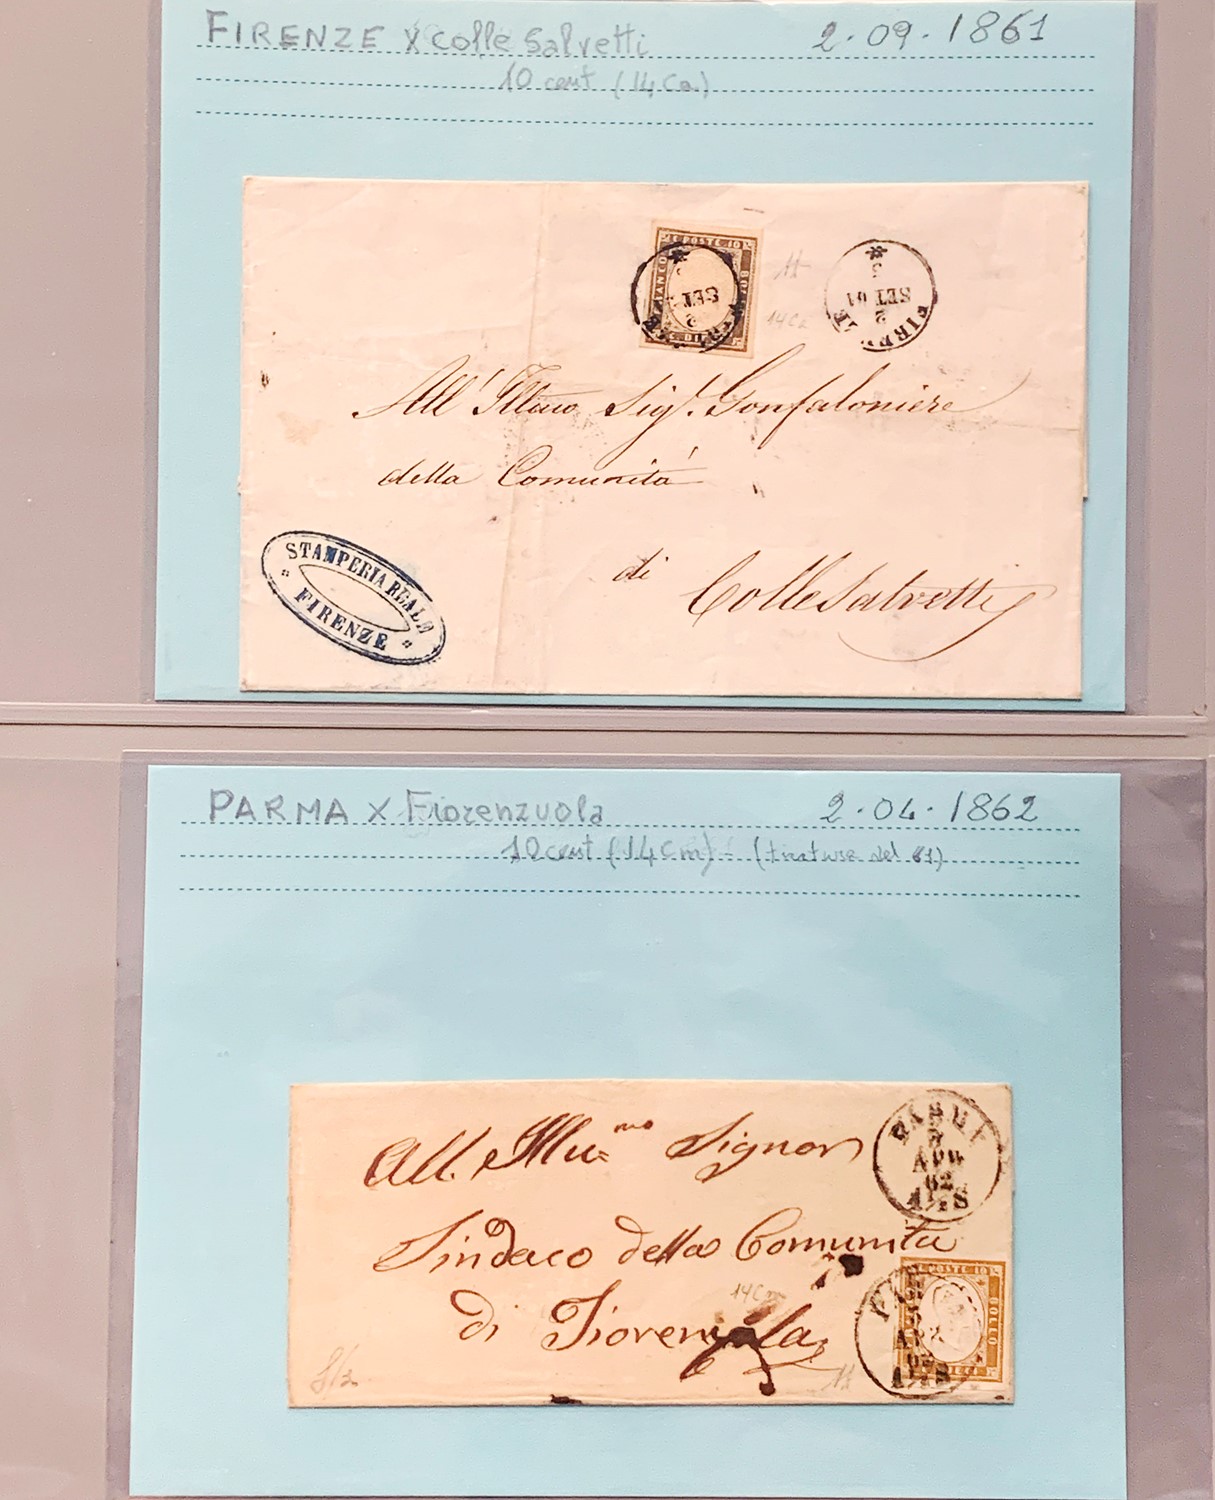 FIRENZE X Colle Salvetti 2.09.1861
10 cent (14 Ca)
POSTE 10
FRANCO BOL
C. DI
SET
14 Ca
*
2
SET 61
FIRENZE
All' Illmo Sigr. Gonfaloniere
della Comunità
di
Collesalvetti
STAMPERIA REALE
" FIRENZE "
PARMA X Fiorenzuola 2.04.1862
10 cent (14 Cm) (tiratura del 61)
All. Illu=mo Signor
PARMA
2
APR
62
Sindaco della Comunita
di Fiorenzola
14 Cm
POSTE 10
BOLLO
DIECI
PAR
APR
62